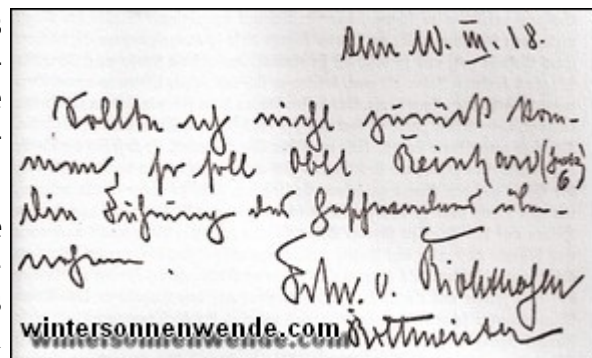 den 10. III. 18.
Sollte ich nicht zurück kom-
men, so soll Oblt Reinhard (Jasta
6)
die Führung des Geschwaders über-
nehmen.
Frhr. v. Richthofen
Rittmeister
wintersonnenwende.com